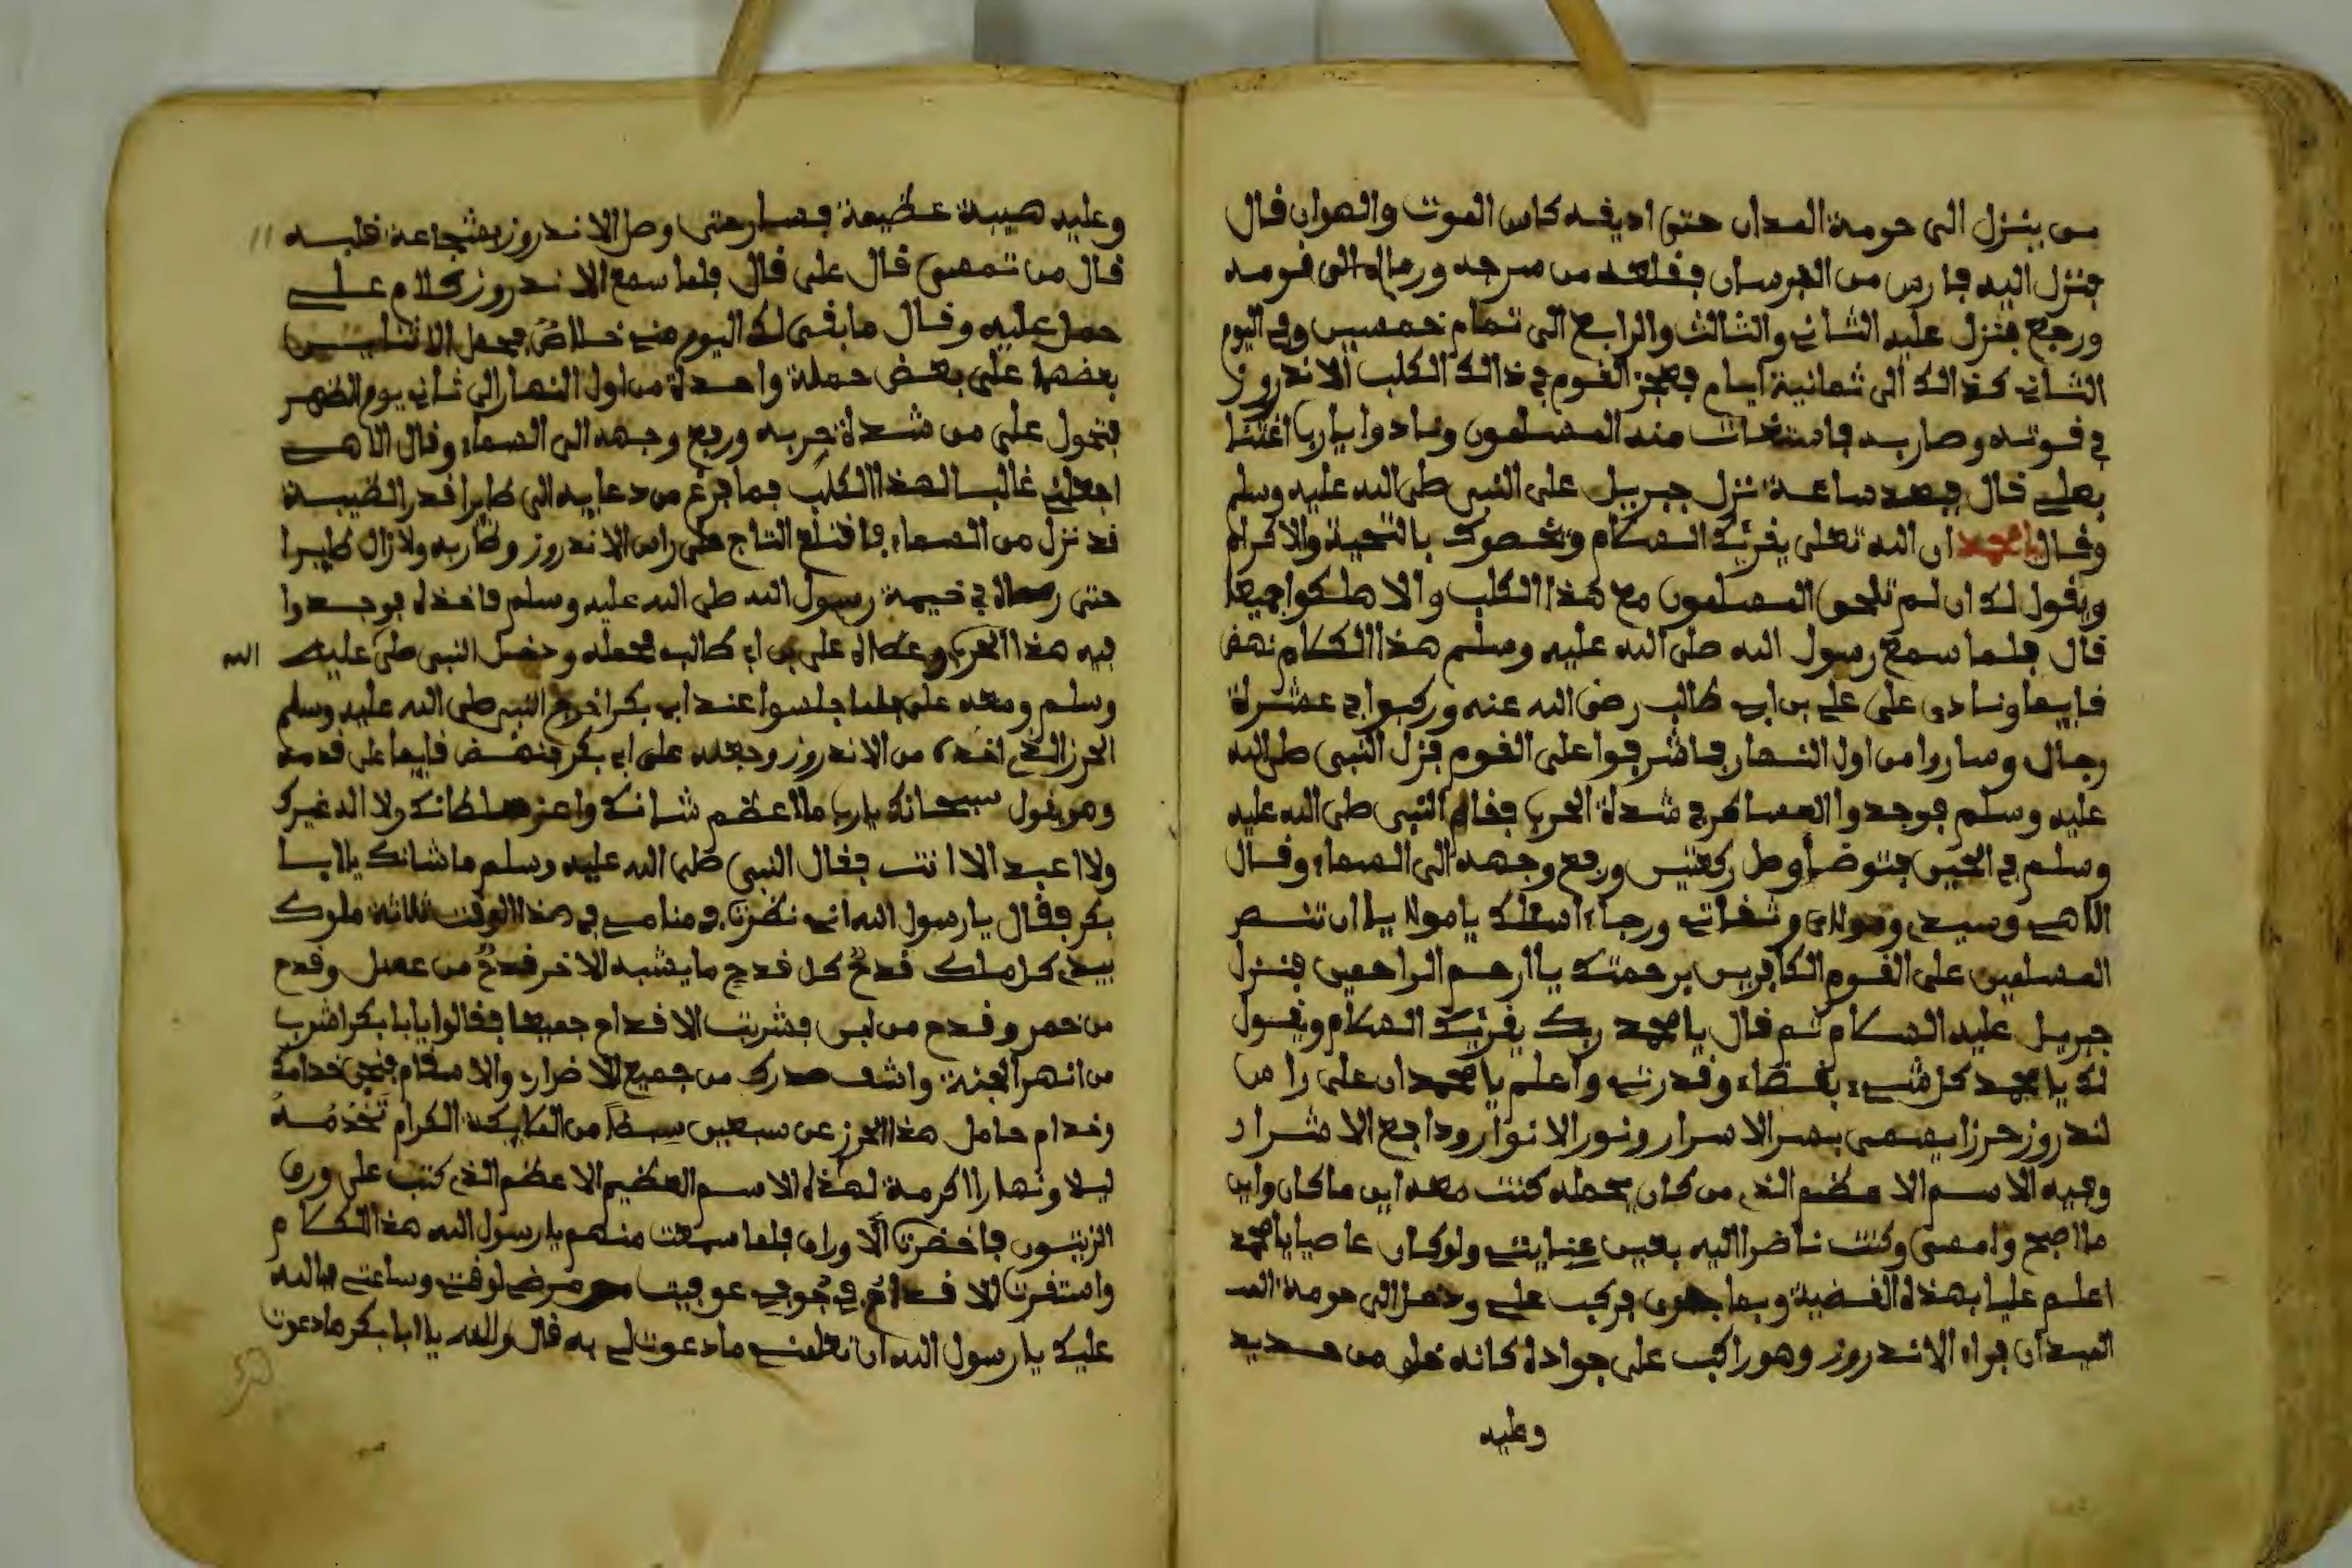 من ينزل الى حومة المدان حتى اديقه كاس الموت والهوان قال
فنزل اليه فارس من الفرسان فقلعه من سرجه ورماه الى قومه
ورجع فنزل عليه الثاني والثالث والرابع الى تمام خمسين وفي اليوم
الثاني كذالك الى ثمانية ايام فعجز القوم في ذالك الكلب الاندروز
في قوته وضاربه فاستغاث منه المسلمون ونادوا يا ربا اغثنا
بعلي قال فبعد ساعة نزل جبريل على النبي صلى الله عليه وسلم
وقال يا محمد ان الله تعلى يقرئك السلام ويخصوك بالتحية والاكرام
ويقول لك ان لم تلحق المسلمون مع هذا الكلب والا هلكوا جميعا
قال فلما سمع رسول الله صلى الله عليه وسلم هذا الكلام نهض
قايما ونادى على علي بن ابي طالب رضى الله عنه وركبوا في عشرة
رجال وساروا من اول النهار فاشرفوا على القوم فنزل النبي صلى الله
عليه وسلم فوجدوا العساكر في شدة الحرب فقام النبي صلى الله عليه
وسلم في الحين فتوضأ وصل ركعتين ورفع وجهه الى السماء وقال
الاهي وسيدي ومولاي وثقاتي ورجاء اسئلك يا مولا يا ان تنصر
المسلمين على القوم الكافرين برحمتك يا ارحم الراحمين فنزل
جبريل عليه السلام ثم قال يا محمد ربك يقرئك السلام ويقول
لك يا محمد كل شيء بقضاء وقدرتي واعلم يا محمد ان على راس
لندروز حرزا يسمى بسر الاسرار ونور الانوار ودافع الاشرار
وفيه الاسم الاعظم الذي من كان يحمله كنت معه اين ما كان واين
ما اصبح وامسى وكنت ناضرا اليه بعين عنايتي ولو كان عاصيا يا محمد
اعلم عليا بهذه القضية وبما فركب علي ودخل الى حومة المد
الميدان فراه الاندروز وهو راكب على جواده كانه خلق من حديد
وعليه
وعليه هيبة عظيمة فسار حتى وصل الاندروز بشجاعة قلبه
قال من تسمى قال على قال فلما سمع الاندروز كلام علي
حمل عليه وقال ما بقى لك اليوم مني خلاص فحمل الاثنايين
بعضهما على بعض حملة واحدة من اول النهار الى ثاني يوم الظهر
فتحول على من شدة حربه ورفع وجهه الى السماء وقال الاهي
اجعلني غالبا لهذا الكلب فما فرغ من دعايه الى طايرا قدر الطيبة
قد نزل من السماء فاقتلع التاج على راس الاندروز وطار به ولا زال طايرا
حتى رماه في خيمة رسول الله صلى الله عليه وسلم فاخذه فوجدوا
فيه هذا الحرز وعطاه على بن ابي طالب فحمله ودخل النبي صلى عليه الله
وسلم ومعه على فلما جلسوا عند ابي بكر اخرج النبي صلى الله عليه وسلم
الحرز الذي اخذه من الاندروز وجعله على ابي بكر فنهض قايما على قدمه
وهو يقول سبحانك يا رب ما اعظم شانك واعز سلطانك ولا اله غيرك
ولا اعبد الا انت فقال النبي صلى الله عليه وسلم ما شانك يا ابا
بكر فقال يا رسول الله اني نظرت في منامي في هذا الوقت ثلاثة ملوك
بيدي كل ملك قدح كل قدح ما يشبه الاخر قدح من عسل وقدح
من خمر وقدح من لبن فشربت الاقداح جميعا فقالوا يا ابا بكر اشرب
من انهر الجنة واشف صدرك من جميع الاضرار والاسقام فنحن خدامه
وخدام حامل هذا الحرز عن سبعين سبطا من الملايكة الكرام تخدمه
ليلا ونهارا اكرمة لهذه الاسم العظيم الاعظم الذي كتب على ورق
الزيتون فاخضرت الاوراق فلما سمعت منهم يا رسول الله هذا الكلام
واستقرت الاقداح في جوفي عوفيت من مرضي لوقتي وساعتي فبالله
عليك يا رسول الله ان تعلمني ما دعوت لي به قال والله يا ابا بكر ما دعوت